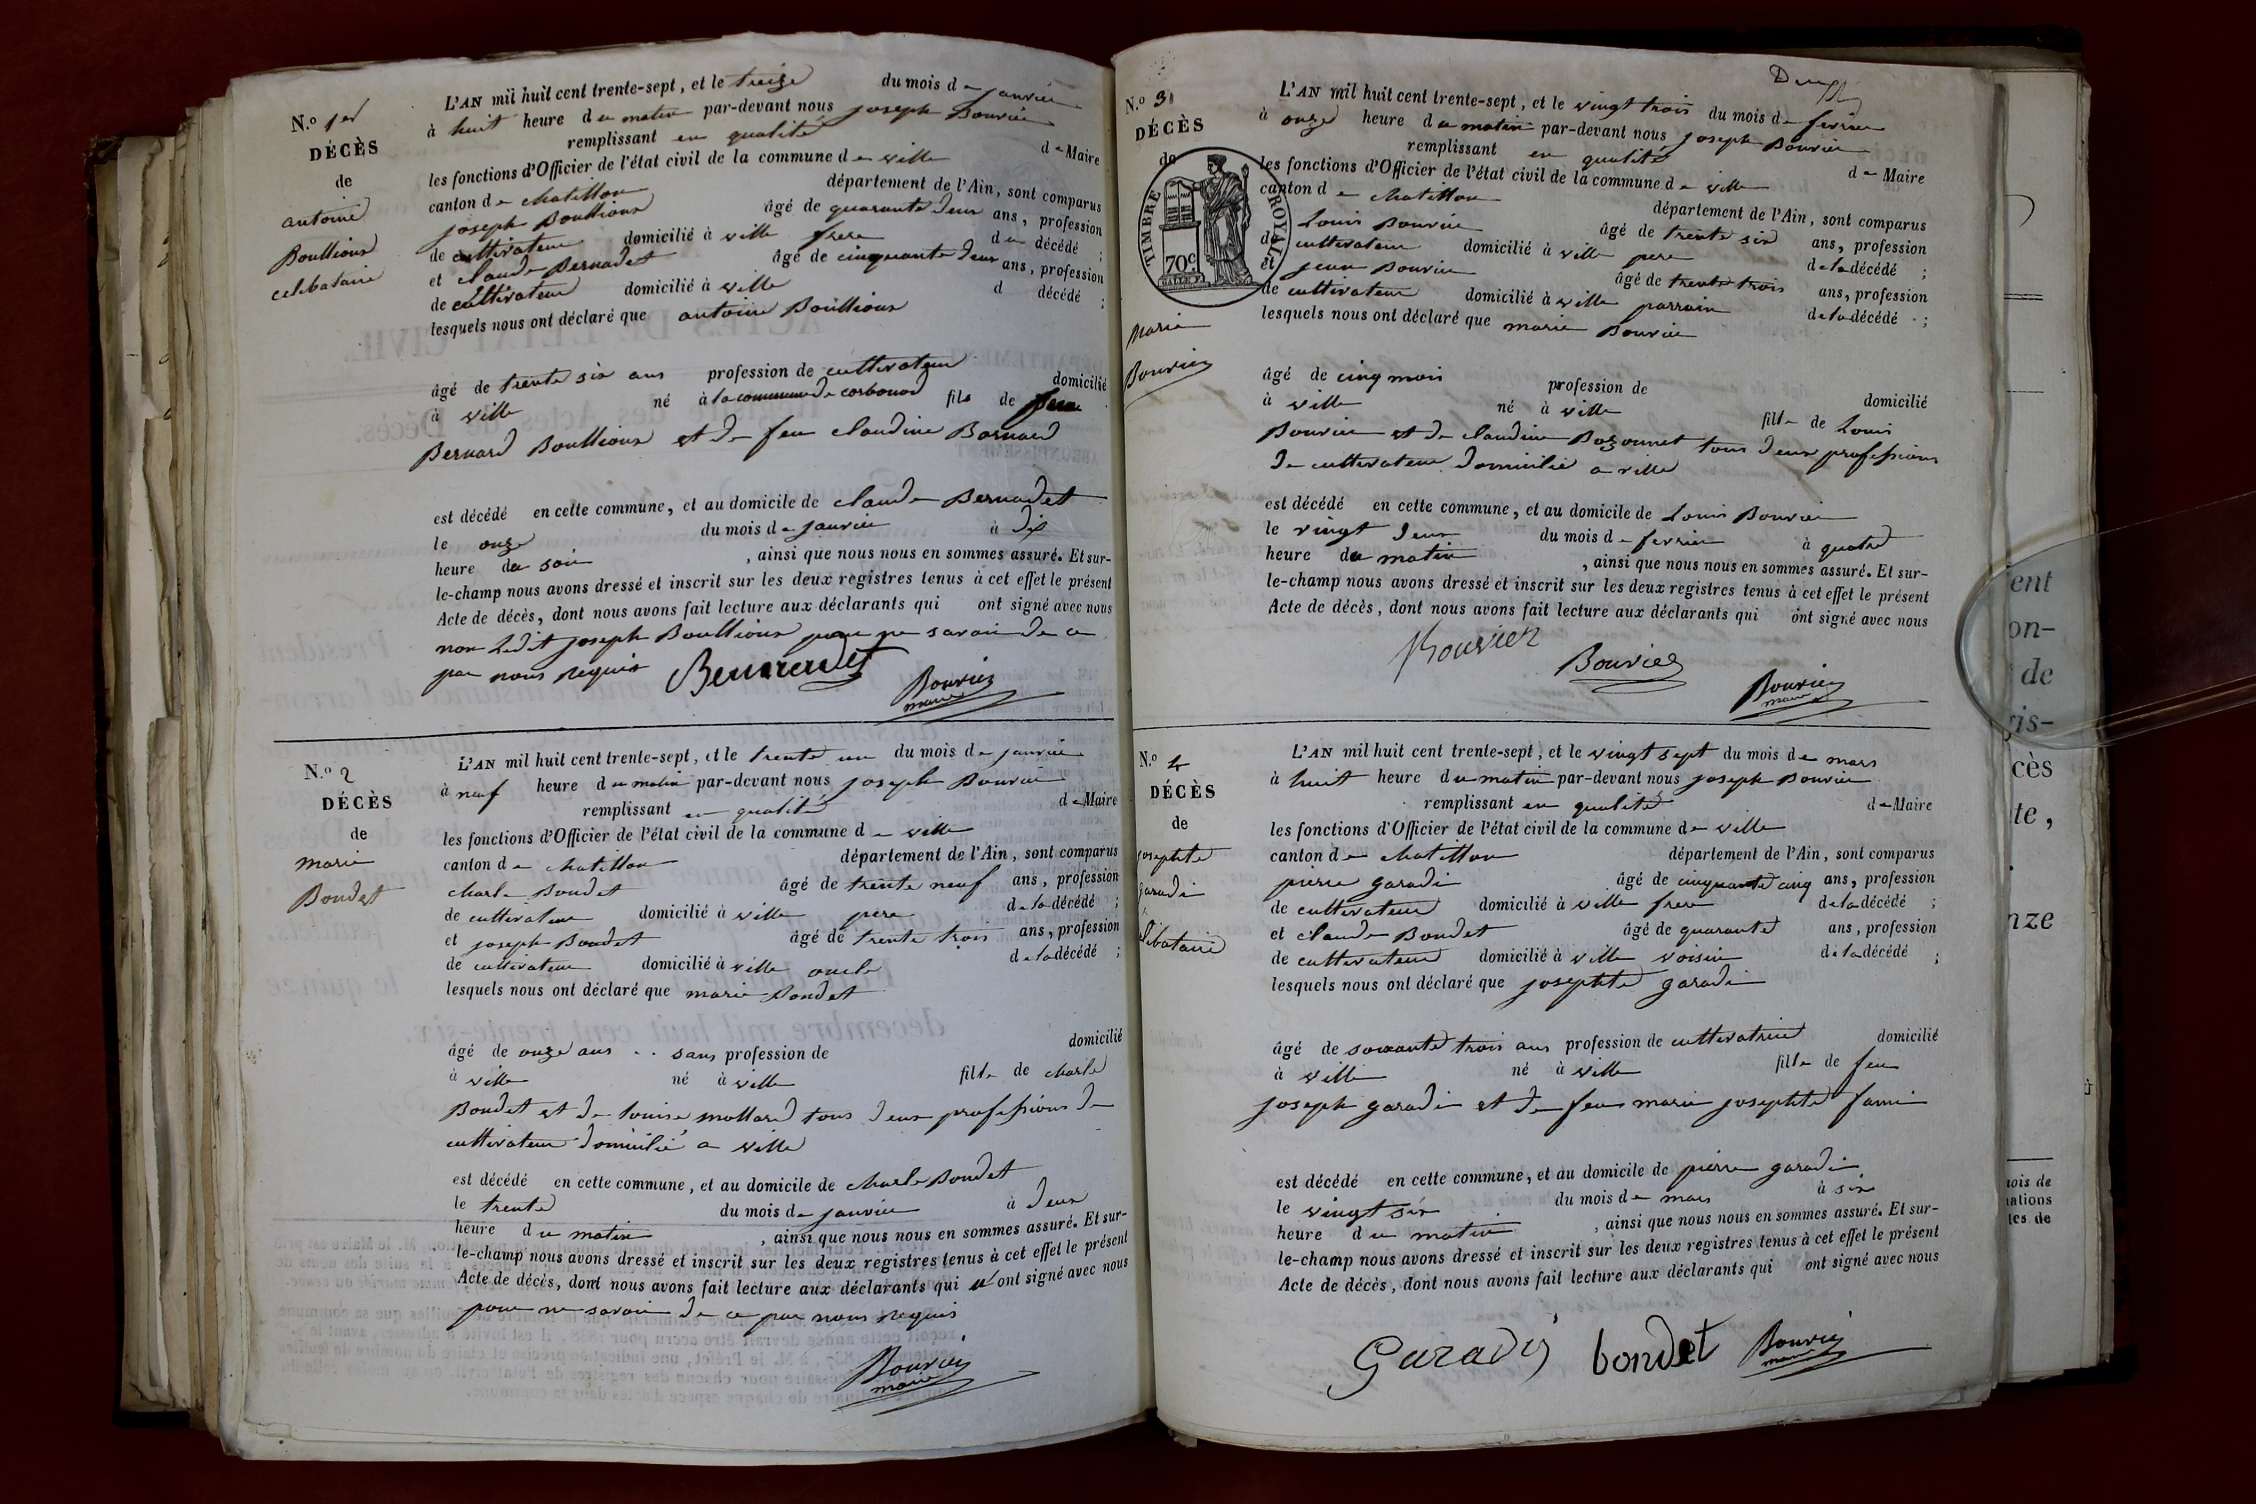 N.o 1er
DÉCÈS
de
antoine
Boullioux
celibataire
L'AN mil huit cent trente-sept, et le treize du mois de janvier
à huit heure du matin par-devant nous joseph Bouvier
remplissant en qualité de Maire
les fonctions d'Officier de l'état civil de la commune de ville
canton de chatillon département de l'Ain, sont comparus
joseph Boullioux âgé de quarante deux ans, profession
de cultivateur domicilié à ville frere du décédé ;
et claude Bernadet âgé de cinquante deux ans, profession
de cultivateur domicilié à ville d décédé ;
lesquels nous ont déclaré que antoine Boullioux
âgé de trente six ans profession de cultivateur domicilié
à ville né à la commune de corbonod fils de
Bernard Boullioux et de feu claudine Bornard
est décédé en cette commune, et au domicile de claude Bernadet
le onze du mois de janvier à dix
heure du soir, ainsi que nous nous en sommes assuré. Et sur-
le-champ nous avons dressé et inscrit sur les deux registres tenus à cet effet le présent
Acte de décès, dont nous avons fait lecture aux déclarants qui ont signé avec nous
non ledit joseph Boullioux pour ne savoir de ce
par nous requis Bernadet
Bouvier
maire
N.o 2
DÉCÈS
de
marie
Bondet
L'AN mil huit cent trente-sept, et le trente un du mois de janvier
à neuf heure du matin par-devant nous joseph Bouvier
remplissant en qualité de Maire
les fonctions d'Officier de l'état civil de la commune de ville
canton de chatillon département de l'Ain, sont comparus
charle Bondet âgé de trente neuf ans, profession
de cultivateur domicilié à ville pere de la décédé ;
et joseph Bondet âgé de trente trois ans, profession
de cultivateur domicilié à ville oncle de la décédé ;
lesquels nous ont déclaré que marie Bondet
âgé de onze ans .. sans profession de domicilié
à ville né à ville fille de charle
Bondet et de louise mollard tous deux professions de
cultivateur domicilié a ville
est décédé en cette commune, et au domicile de charle Bondet
le trente du mois de janvier à deux
heure du matin, ainsi que nous nous en sommes assuré. Et sur-
le-champ nous avons dressé et inscrit sur les deux registres tenus à cet effet le présent
Acte de décès, dont nous avons fait lecture aux déclarants qui n'ont signé avec nous
pour ne savoir de ce par nous requis
Bouvier
maire
N.o 3
DÉCÈS
de
TIMBRE ROYAL
70c.
marie
Bouvier
L'AN mil huit cent trente-sept, et le vingt trois du mois de fevrier
à onze heure du matin par-devant nous joseph Bouvier
remplissant en qualité de Maire
les fonctions d'Officier de l'état civil de la commune de ville
canton de chatillon département de l'Ain, sont comparus
Louis Bouvier âgé de trente six ans, profession
de cultivateur domicilié à ville pere de la décédé ;
et jean Bouvier âgé de trente trois ans, profession
de cultivateur domicilié à ville parrain de la décédé ;
lesquels nous ont déclaré que marie Bouvier
âgé de cinq mois profession de domicilié
à ville né à ville fille de Louis
Bouvier et de claudine Bozonnet tous deux professions
de cultivateur domicilié a ville
est décédé en cette commune, et au domicile de Louis Bouvier
le vingt deux du mois de fevrier à quatre
heure du matin, ainsi que nous nous en sommes assuré. Et sur-
le-champ nous avons dressé et inscrit sur les deux registres tenus à cet effet le présent
Acte de décès, dont nous avons fait lecture aux déclarants qui ont signé avec nous
Bouvier Bouvier Bouvier
maire
N.o 4
DÉCÈS
de
josephte
garadi
celibataire
L'AN mil huit cent trente-sept, et le vingt sept du mois de mars
à huit heure du matin par-devant nous joseph Bouvier
remplissant en qualité de Maire
les fonctions d'Officier de l'état civil de la commune de ville
canton de chatillon département de l'Ain, sont comparus
pierre garadi âgé de cinquante cinq ans, profession
de cultivateur domicilié à ville frere de la décédé ;
et claude Bondet âgé de quarante ans, profession
de cultivateur domicilié à ville voisin de la décédé ;
lesquels nous ont déclaré que josephte garadi
âgé de soixante trois ans profession de cultivatrice domicilié
à ville né à ville fille de feu
joseph garadi et de feu marie josephte fami
est décédé en cette commune, et au domicile de pierre garadi
le vingt six du mois de mars à six
heure du matin, ainsi que nous nous en sommes assuré. Et sur-
le-champ nous avons dressé et inscrit sur les deux registres tenus à cet effet le présent
Acte de décès, dont nous avons fait lecture aux déclarants qui ont signé avec nous
Garadi bondet Bouvier
maire